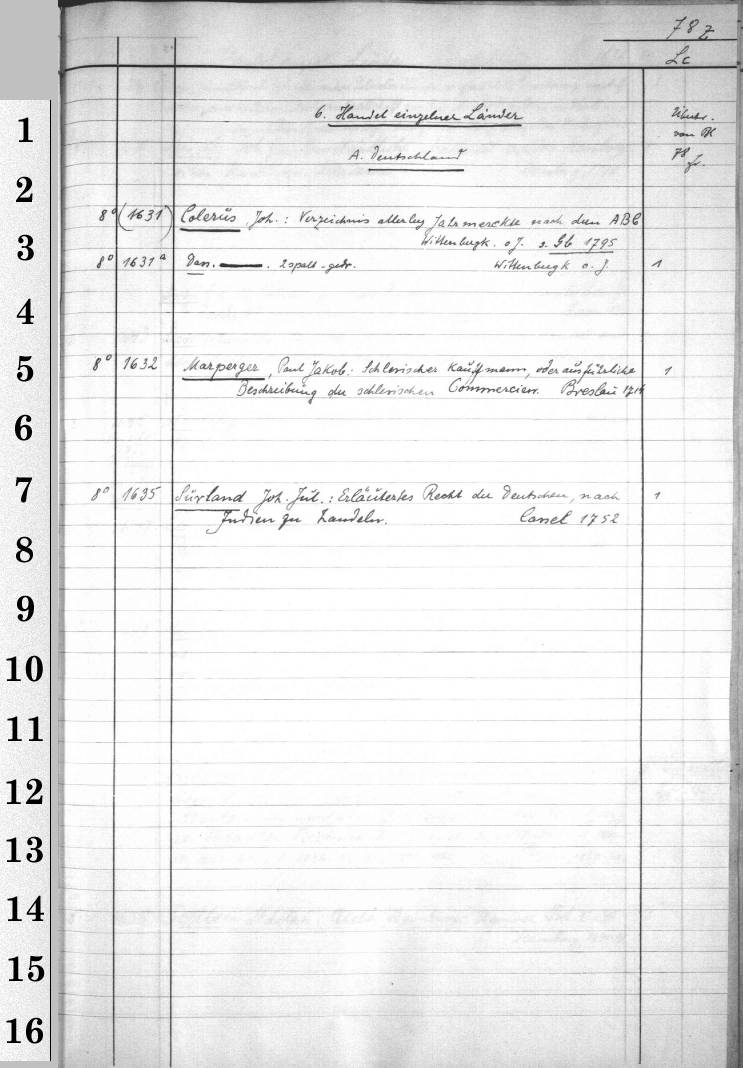 78z
Lc
6. Handel einzelner Länder
von
78
A. Deutschland
8° (1631) Colerus, Joh.: Verzeichnis allerley Jahrmerckte nach dem ABC
Wittenbergk. o.J. s. Gb 1795
8° 1631a Dass. ———. 2spalt. gedr. Wittenbergk o.J. 1
8° 1632 Marperger, Paul Jakob: Schlesischer Kauffmann, oder ausführliche 1
Beschreibung der schlesischen Commercien. Breslau 1714
8° 1635 Surland Joh. Jul.: Erläutertes Recht der Deutschen, nach 1
Indien zu handeln. Cassel 1752
1
2
3
4
5
6
7
8
9
10
11
12
13
14
15
16